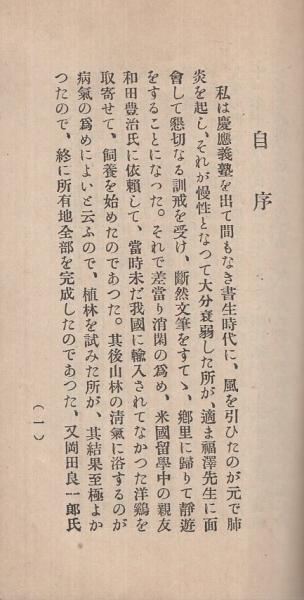 自序
私は慶應義塾を出て間もなき書生時代に、風を引ひたのが元で肺
炎を起し、それが慢性となつて大分衰弱した所が、適ま福澤先生に面
會して懇切なる訓戒を受け、斷然文筆をすてゝ、鄕里に歸りて靜遊
をすることになつた。それで差當り消閑の爲め、米國留學中の親友
和田豊治氏に依賴して、當時未だ我國に輸入されてなかつた洋鷄を
取寄せて、飼養を始めたのであつた。其後山林の淸氣に浴するのが
病氣の爲めによいと云ふので、植林を試みた所が、其結果至極よか
つたので、終に所有地全部を完成したのであつた、又岡田良一郞氏
（一）